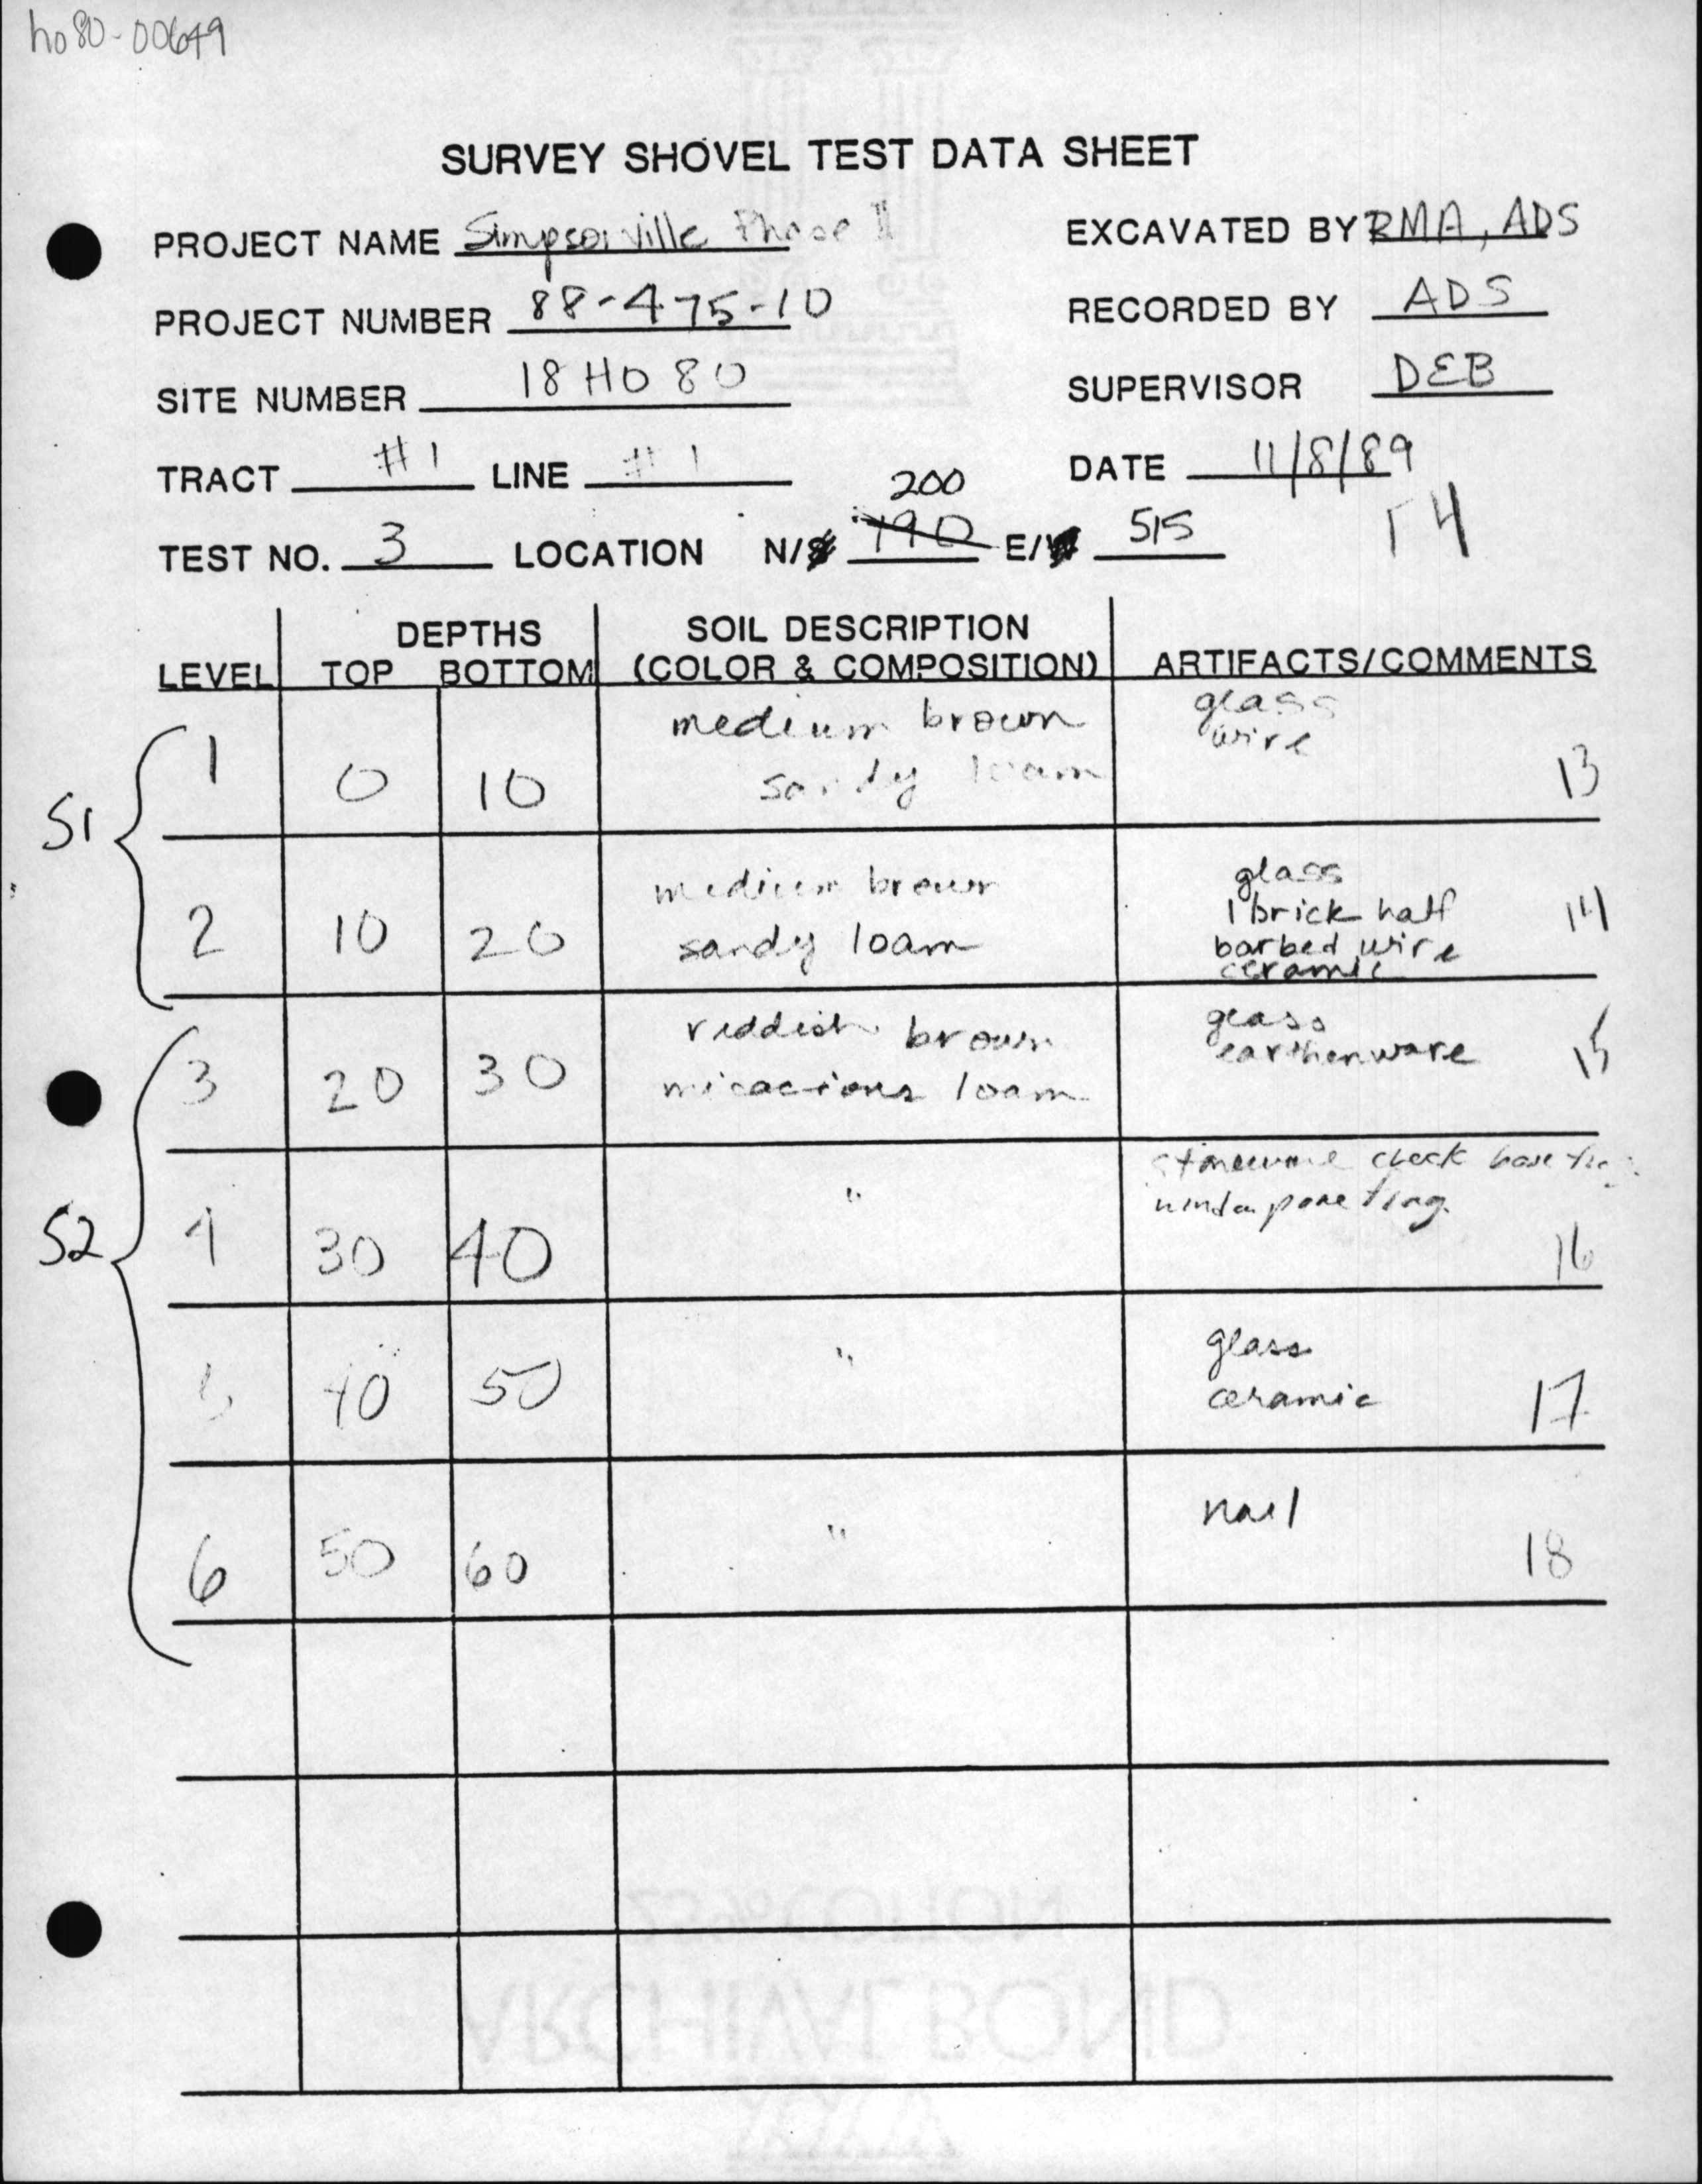 ho80-00649
SURVEY SHOVEL TEST DATA SHEET
PROJECT NAME Simpsonville Phase II EXCAVATED BY RMA, ADS
PROJECT NUMBER 88-475-10 RECORDED BY ADS
SITE NUMBER 18 HO 80 SUPERVISOR DEB
TRACT #1 LINE #1 DATE 11/8/89
200
TEST NO. 3 LOCATION N/S 190 E/W 515
DEPTHS SOIL DESCRIPTION
LEVEL TOP BOTTOM (COLOR & COMPOSITION) ARTIFACTS/COMMENTS
S1
medium brown glass
sandy loam wire
1 0 10 13
medium brown glass
1 brick half 14
2 10 20 sandy loam barbed wire
ceramic
S2
reddish brown glass
earthenware 15
3 20 30 micacious loam
stoneware base
" pane frag.
4 30 40 16
" glass
5 40 50 ceramic 17
" nail
6 50 60 18
25% COTTON
ARCHIVAL BOND